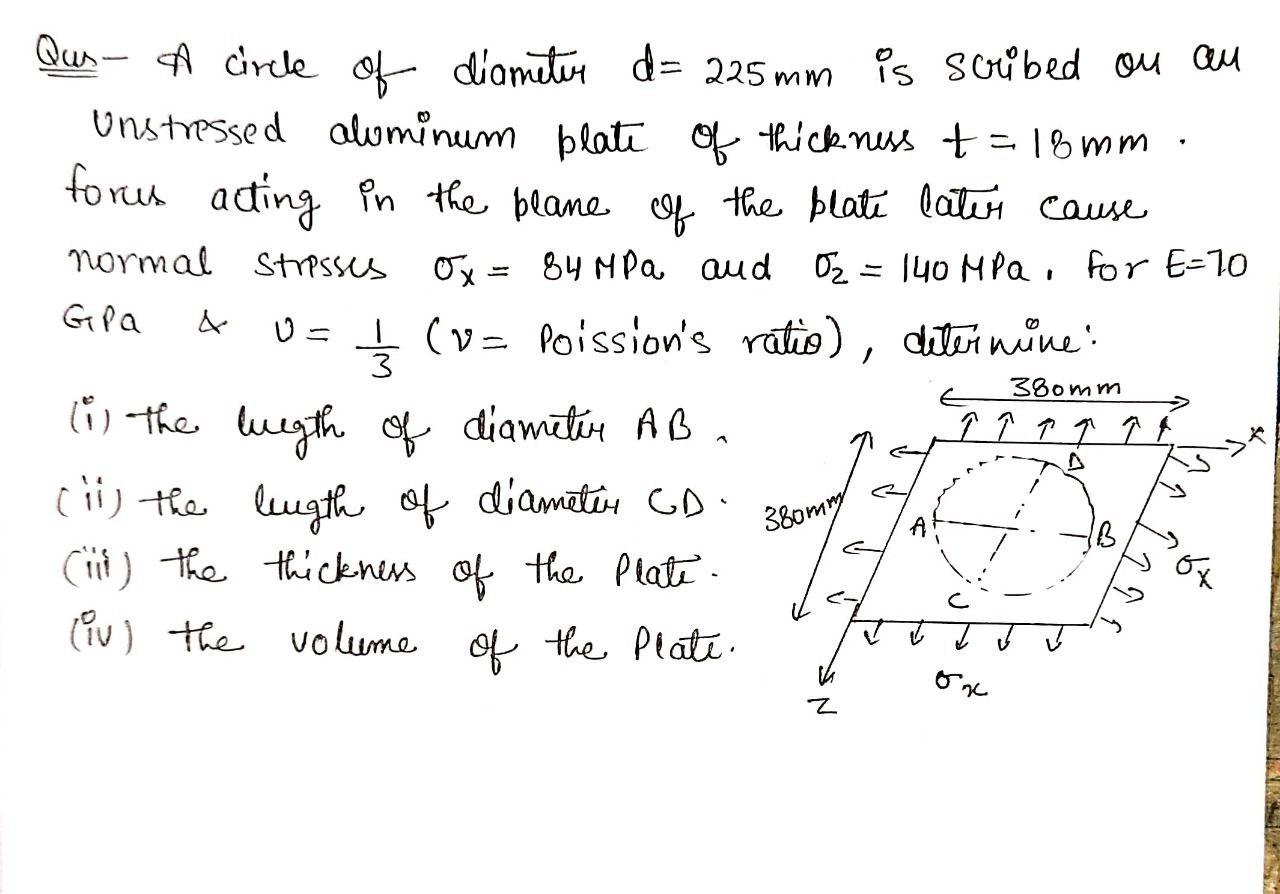 Qus- A circle of diameter d = 225 mm is scribed on an
Unstressed aluminum plate of thickness t = 18 mm .
forces acting in the plane of the plate later cause
normal stresses σx = 84 MPa and σz = 140 MPa . For E=70
GPa & ν = 1/3 (ν = Poission's ratio), determine:
(i) the length of diameter AB .
(ii) the length of diameter CD .
(iii) the thickness of the Plate .
(iv) the volume of the Plate.
380mm
x
D
380mm
A
B
σx
C
σx
z